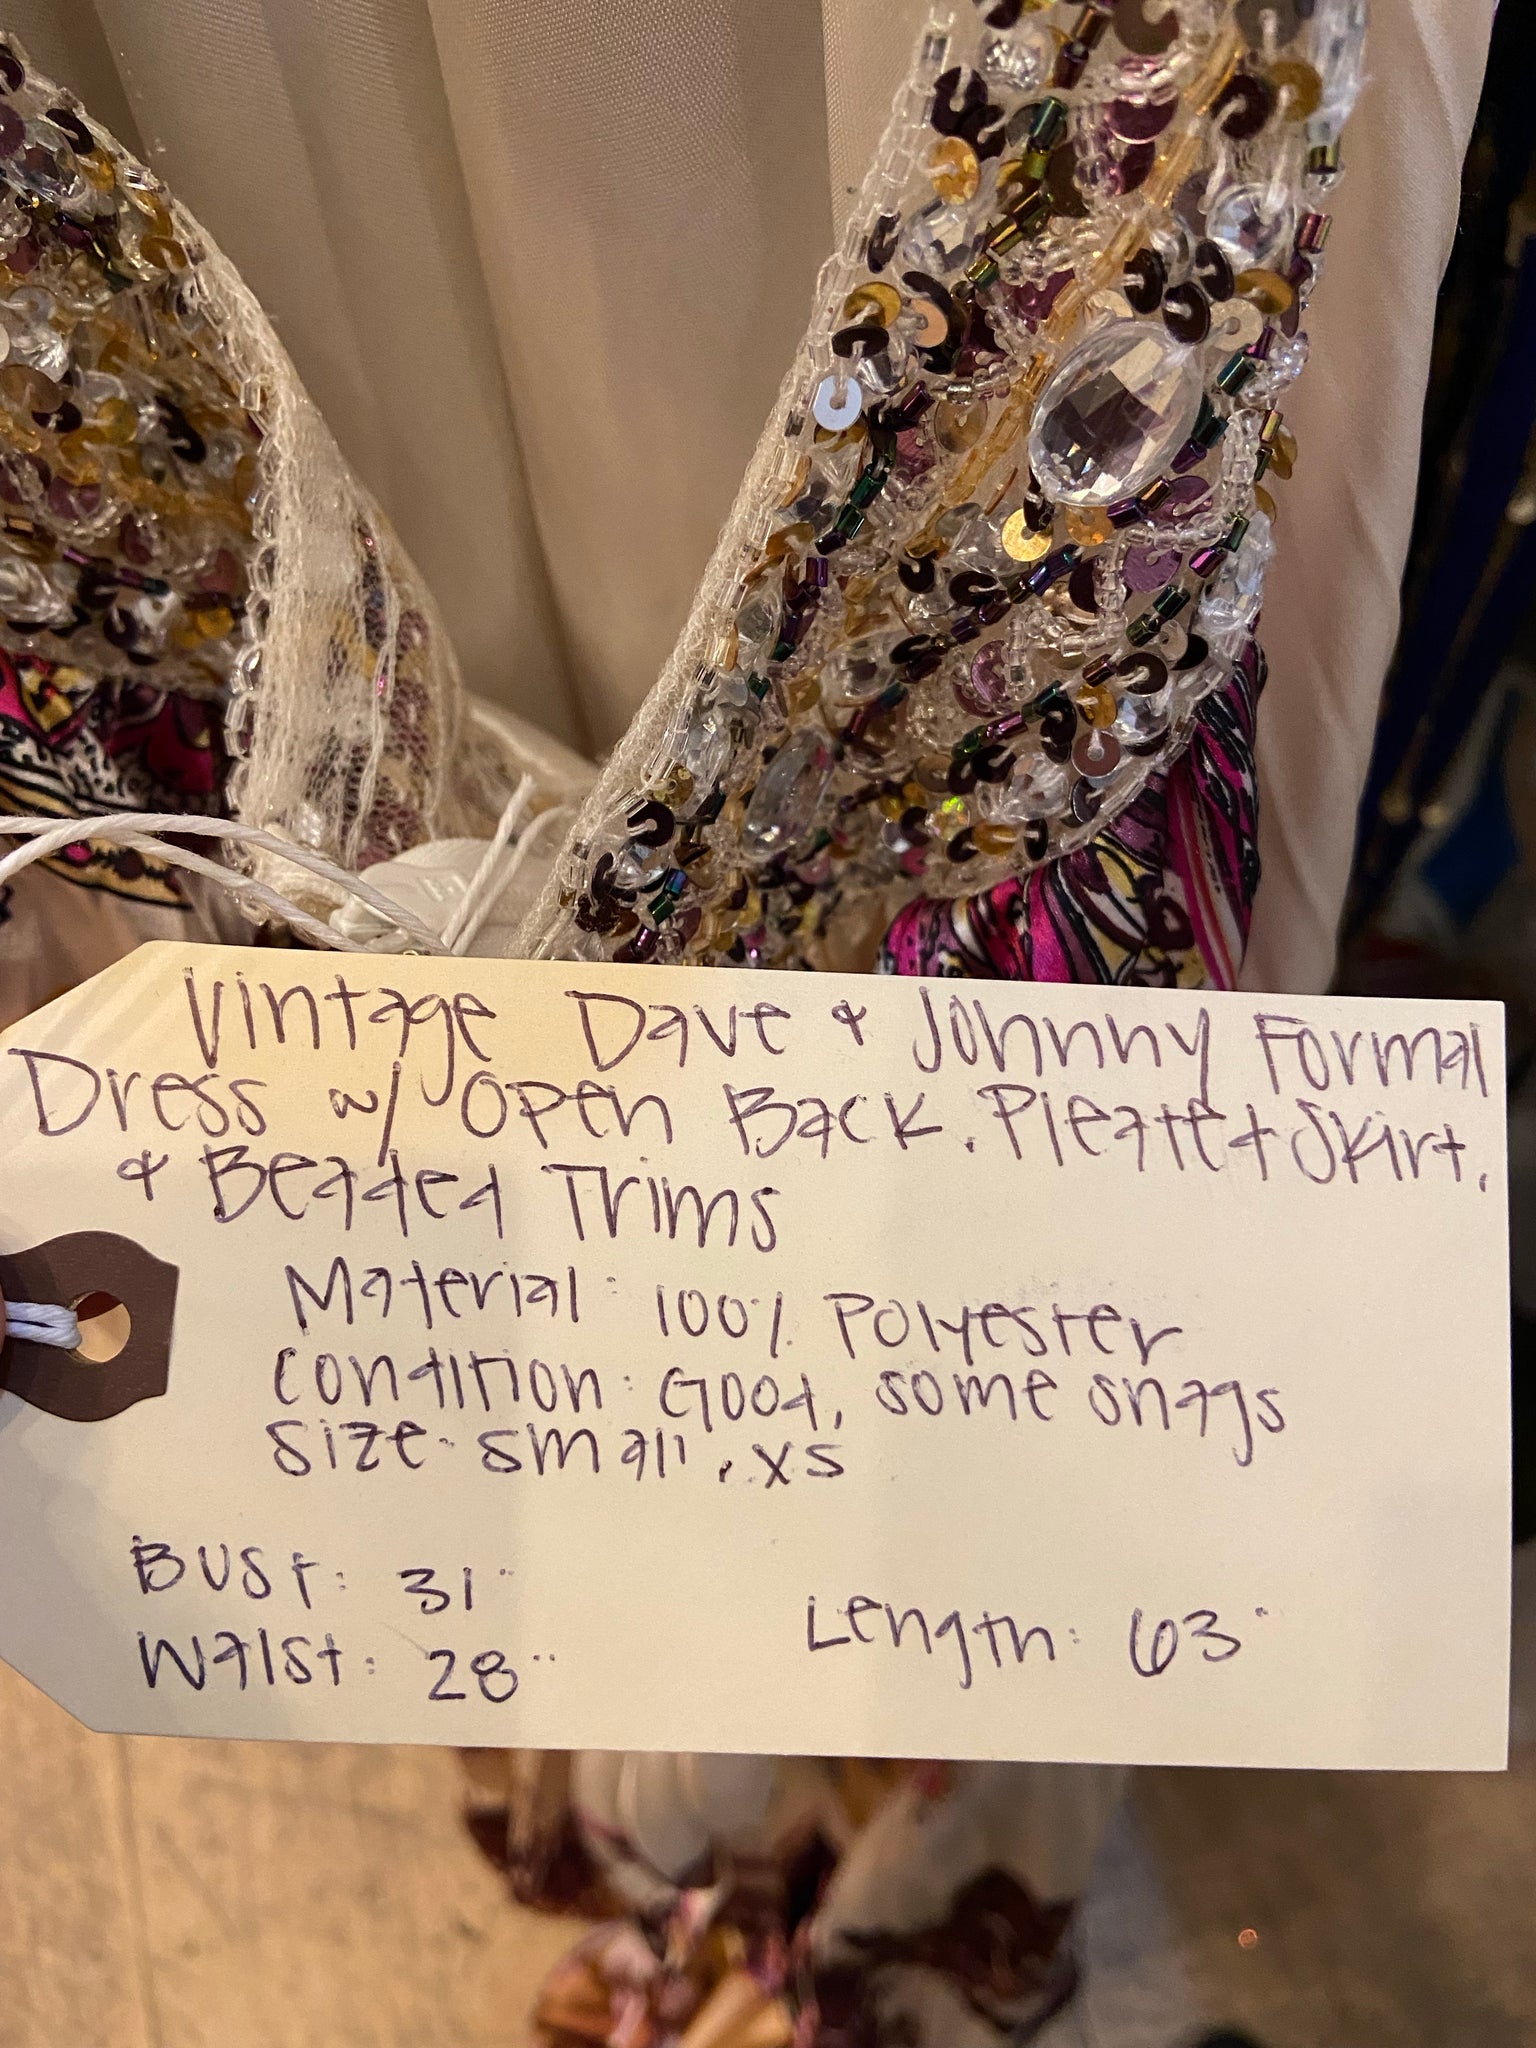 Vintage Dave & Johnny Formal
Dress w/ Open Back. Pleated Skirt.
& Beaded Trims
Material: 100% Polyester
Condition: Good, some snags
Size: Small, XS
Bust: 31"
Waist: 28"
Length: 63"